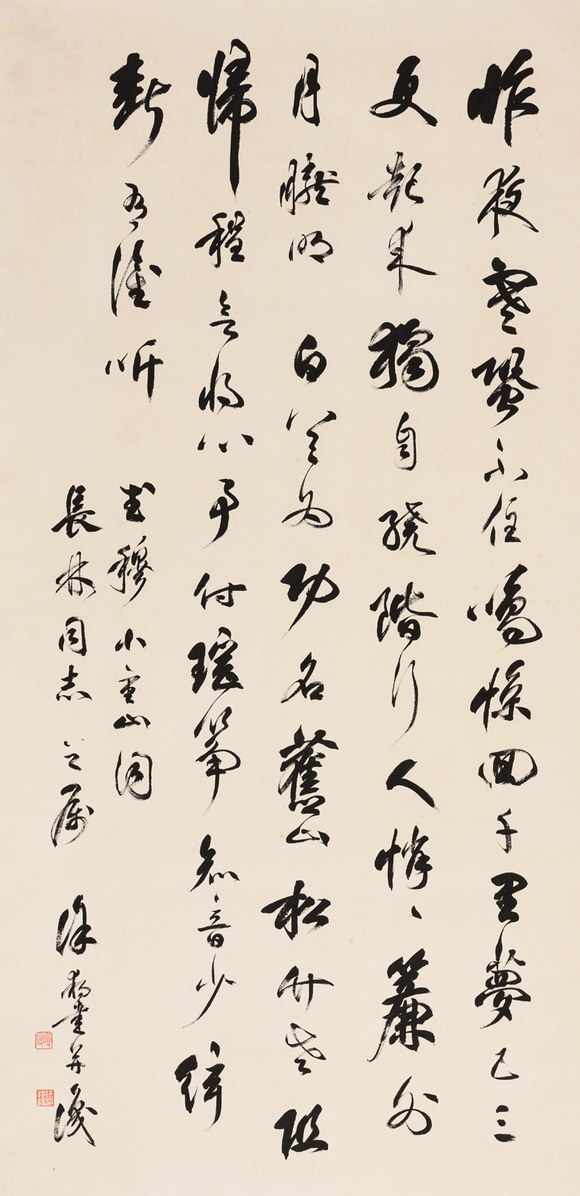 昨夜寒蛩不住鳴惊回千里夢已三
更起来獨自繞階行人悄〻簾外
月朧明白首为功名舊山松竹老阻
歸程欲将心事付瑤箏知音少絃
断有誰听
武穆小重山词
長林同志之属 徐